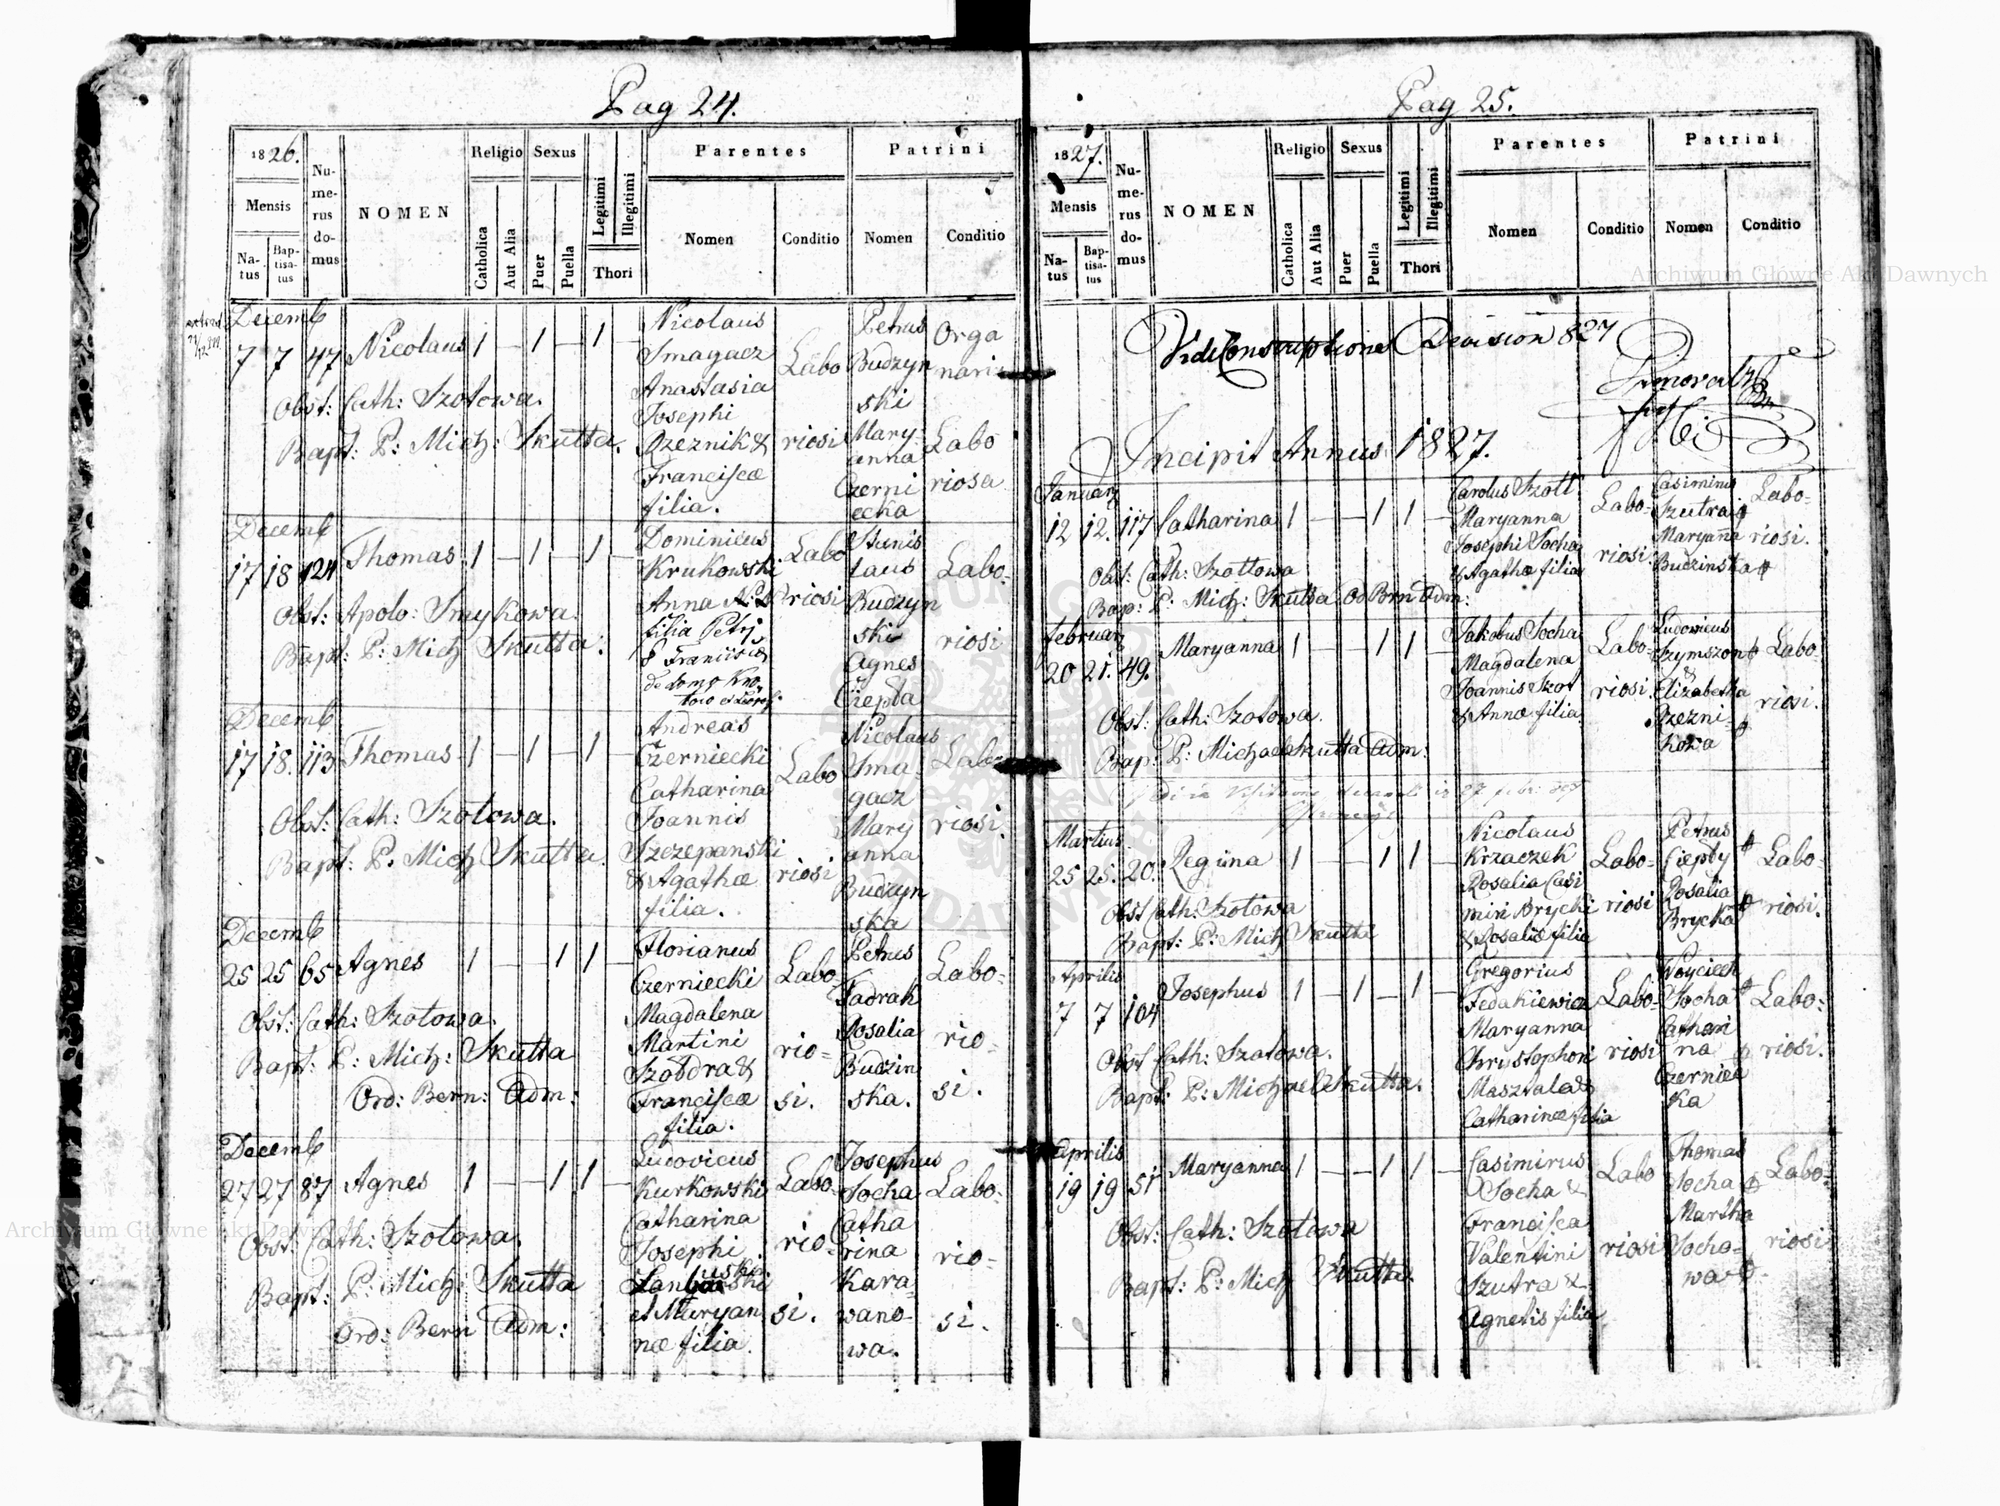 Pag 24.
1826.
Mensis
Natus
Baptisatus
Numerus domus
NOMEN
Religio
Catholica
Aut Alia
Sexus
Puer
Puella
Legitimi
Illegitimi
Thori
Parentes
Nomen
Conditio
Patrini
Nomen
Conditio
Decemb
7 7 47 Nicolaus 1 — 1 — 1 —
Obst: Cath: Szotowa.
Bapt: P: Mich: Skutta.
Nicolaus
Smagacz
Anastasia
Josephi
Rzeznik &
Franciscæ
filia.
Labo
riosi
Petrus
Budzyn
ski
Mary
anna
Czerni
ecka
Orga
nari
Labo
riosa
Decemb
17 18 124 Thomas 1 — 1 — 1 —
Obst: Apolo: Smykowa.
Bapt: P: Mich Skutta.
Dominicus
Krukowski
Anna
filia Petri
Labo
riosi
Stanis
laus
Budzyn
ski
Agnes
Ciepla
Labo-
riosi
Decemb
17 18. 113 Thomas 1 — 1 — 1 —
Obst: Cath: Szotowa.
Bapt: P: Mich Skutta.
Andreas
Czerniecki
Catharina
Joannis
Szczepanski
& Agathæ
filia.
Labo
riosi
Nicolaus
Sma-
gacz
Mary
anna
Budzyn
ska
Labo
riosi.
Decemb
25 25 65 Agnes 1 — — 1 1 —
Obst: Cath: Szotowa.
Bapt: P: Mich: Skutta
Ord: Bern: Adm:
Florianus
Czerniecki
Magdalena
Martini
Szobdra &
Franciscæ
filia.
Labo-
rio-
si.
Petrus
Fadrak
Rosalia
Budzin
ska.
Labo-
rio-
si.
Decemb
27 27 87 Agnes 1 — — 1 1 —
Obst: Cath: Szotowa.
Bapt: P: Mich: Skutta
Ord: Bern Adm:
Ludovicus
Kurkowski
Catharina
Josephi
et Maryan
næ filia.
Labo-
rio-
si.
Josephus
Socha
Catha
rina
Kara-
wano-
wa.
Labo-
rio-
si.
Pag 25.
1827.
Mensis
Natus
Baptisatus
Numerus domus
NOMEN
Religio
Catholica
Aut Alia
Sexus
Puer
Puella
Legitimi
Illegitimi
Thori
Parentes
Nomen
Conditio
Patrini
Nomen
Conditio
Incipit Annus 1827.
Januar
12 12. 117 Catharina 1 — — 1 1 —
Obst: Cath: Szottowa
Bap: P: Mich: Skutta Adm:
Carolus Szott
Maryanna
Josephi Socha
& Agathæ filia
Labo-
riosi
Casimirus
Szutra
Maryanna
Budzinska
Labo-
riosi.
Februar
20 21. 49. Maryanna 1 — — 1 1 —
Obst: Cath: Szotowa.
Bap: P: Michael Skutta Adm:
Jakobus Socha
Magdalena
Joannis Szot
& Annæ filia
Labo-
riosi
Ludovicus
Szymszon
&
Elizabetha
Rzezni-
kowa
Labo
riosi.
Martius
25 25. 20. Regina 1 — — 1 1 —
Obst Cath: Szotowa
Bapt: P: Mich Skutta
Nicolaus
Krzaczek
Rosalia Casi
miri Brycki
& Rosaliæ filia
Labo-
riosi
Petrus
Ciepły
Rosalia
Brycka
Labo-
riosi.
Aprilis
7 7 104 Josephus 1 — 1 — 1 —
Obst Cath: Szotowa.
Bapt: P: Michael Skutta.
Gregorius
Fedakiewicz
Maryanna
Chrystophori
Masztala &
Catharinæ filia
Labo-
riosi
Woyciech
Socha
Cathari
na
Czerniec
ka
Labo:
riosi.
Aprilis
19 19 51 Maryanna 1 — — 1 1 —
Obst: Cath: Szotowa
Bapt: P: Mich Skutta.
Casimirus
Socha &
Francisca
Valentini
Szutra &
Agnetis filia
Labo
riosi
Thomas
Socha
Martha
Socho-
wa
Labo-
riosi
Archiwum Główne Akt Dawnych
Archiwum Główne Akt Dawnych